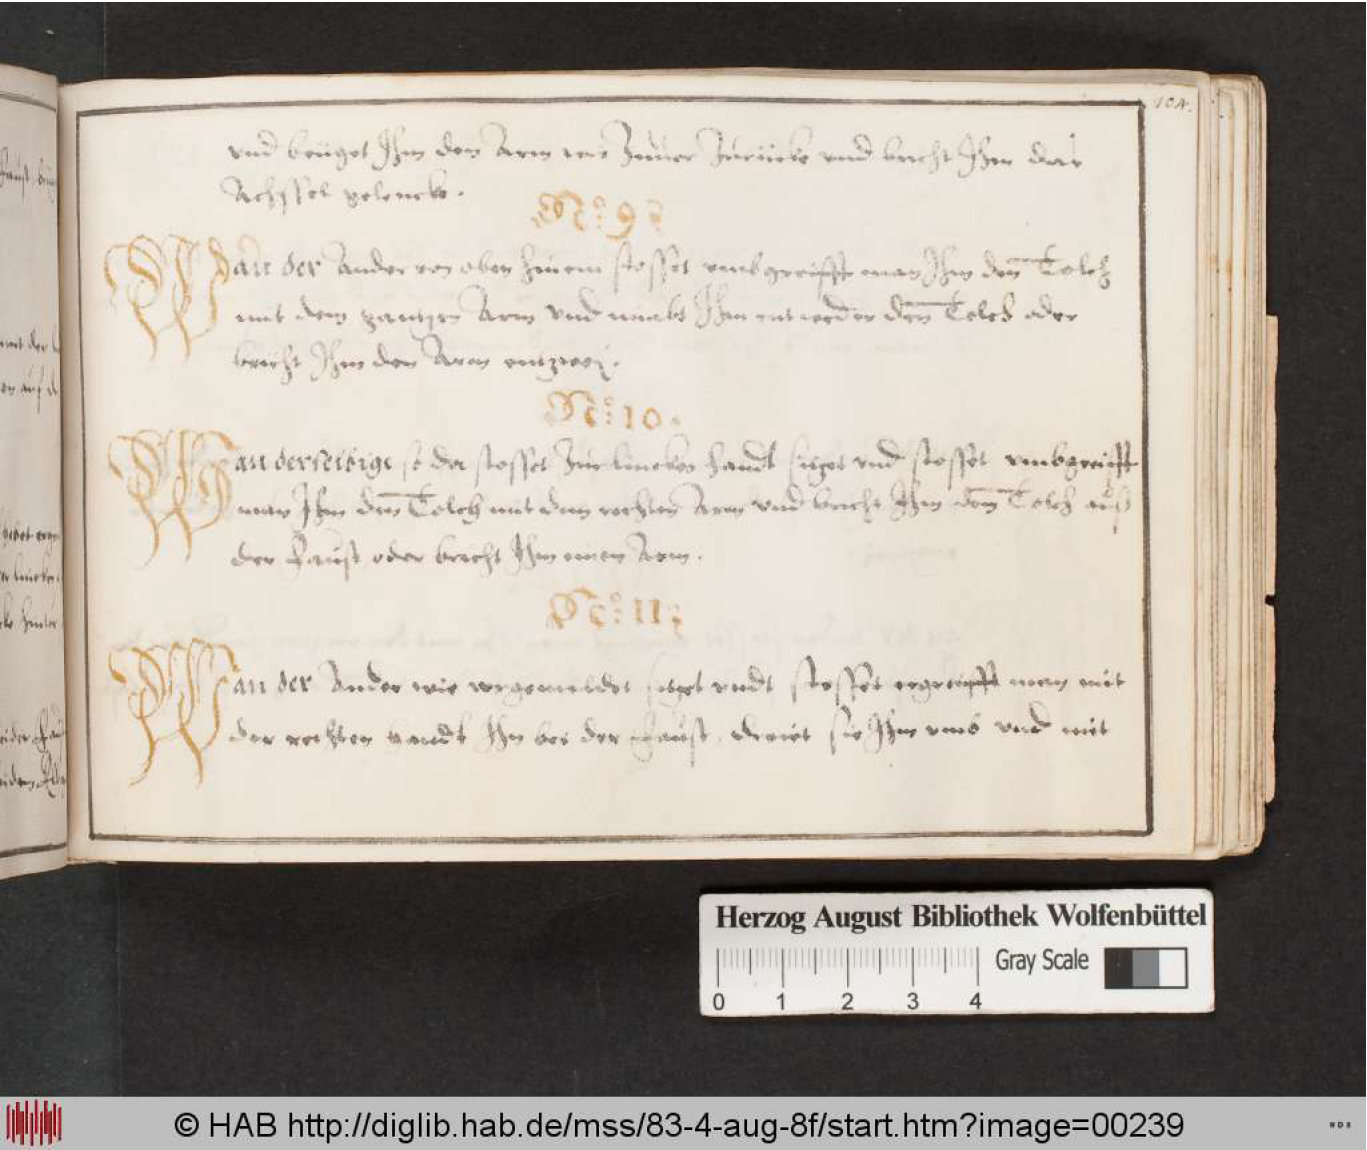 104.
vnd beüget Ihm den Arm wie Zuuor Zurücke vnd bricht Ihm das
Achssel gelencke.
No: 9:
Wan der Ander von oben hinein stosset vmbgreifft man Ihm den Tolch
mit dem gantzen Arm vnd nimbt Ihm entweder den Tolch oder
bricht Ihm den Arm entzwei.
No: 10.
Wan derselbige so da stosset Zur lincken handt lieget vnd stosset vmbgreifft
man Ihm den Tolch mit dem rechten Arm vnd bricht Ihm den Tolch auß
der Faust oder bricht Ihm einen Arm.
No: 11:
Wan der Ander wie vorgemeldet lieget vndt stosset ergreifft man mit
der rechten handt Ihn bei der Faust, dreiet sie Ihm vmb vnd mit
Herzog August Bibliothek Wolfenbüttel
Gray Scale
0 1 2 3 4
© HAB http://diglib.hab.de/mss/83-4-aug-8f/start.htm?image=00239